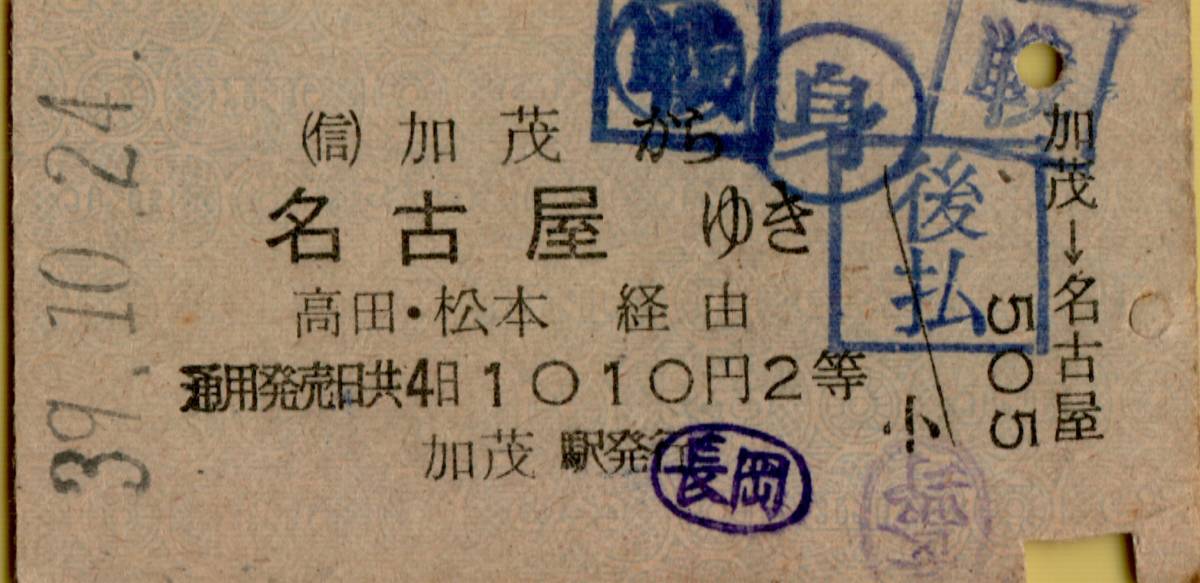 39.10.24.
㊞
(信)加茂から
名古屋ゆき
高田・松本 経由
通用発売日共4日1010円2等
加茂駅発行
戦
身
後払
長岡
加茂→名古屋
小 505